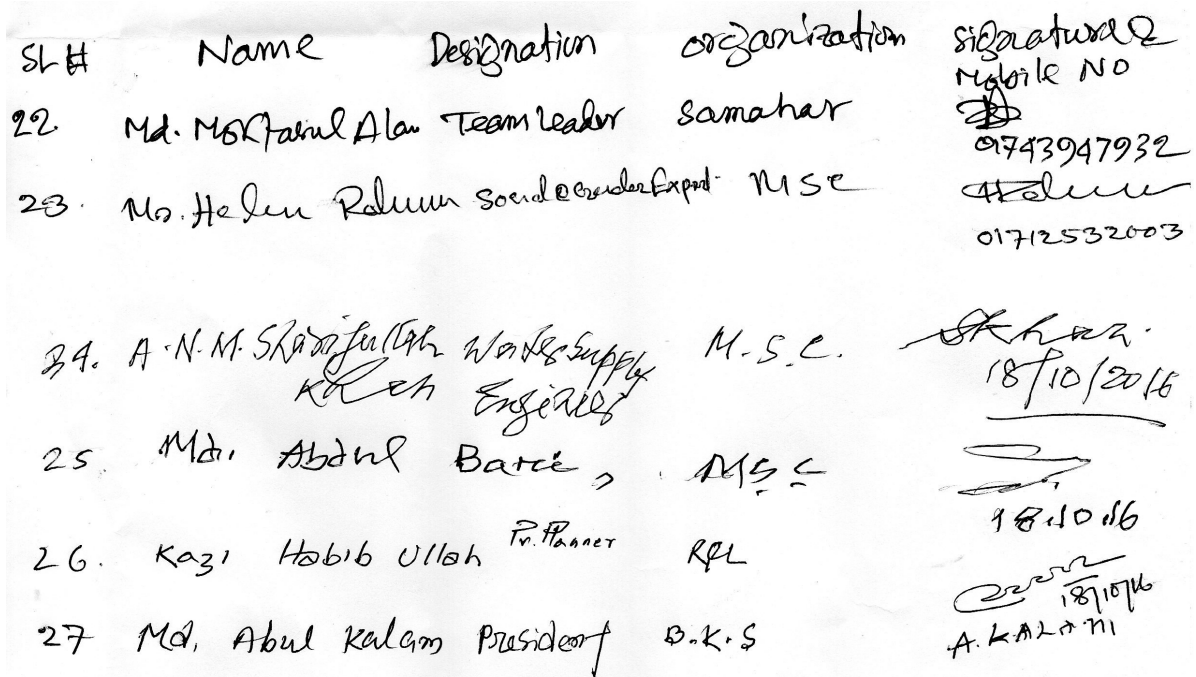 SL # Name Designation organization signature &
Mobile NO
22. Md. Alam Team Leader Samahar
01743947932
23. Ms. Helen Rahman Social & Gender Expert MSC
01712532003
24. A.N.M. Sharifullah Water Supply M.S.C.
Khan Engineer
18/10/2016
25. Md. Abdul Barie, MSC
18.10.16
26. Kazi Habib Ullah Pr. Planner RPL
18/10/16
27 Md. Abul Kalam President B.K.S
A. KALAM